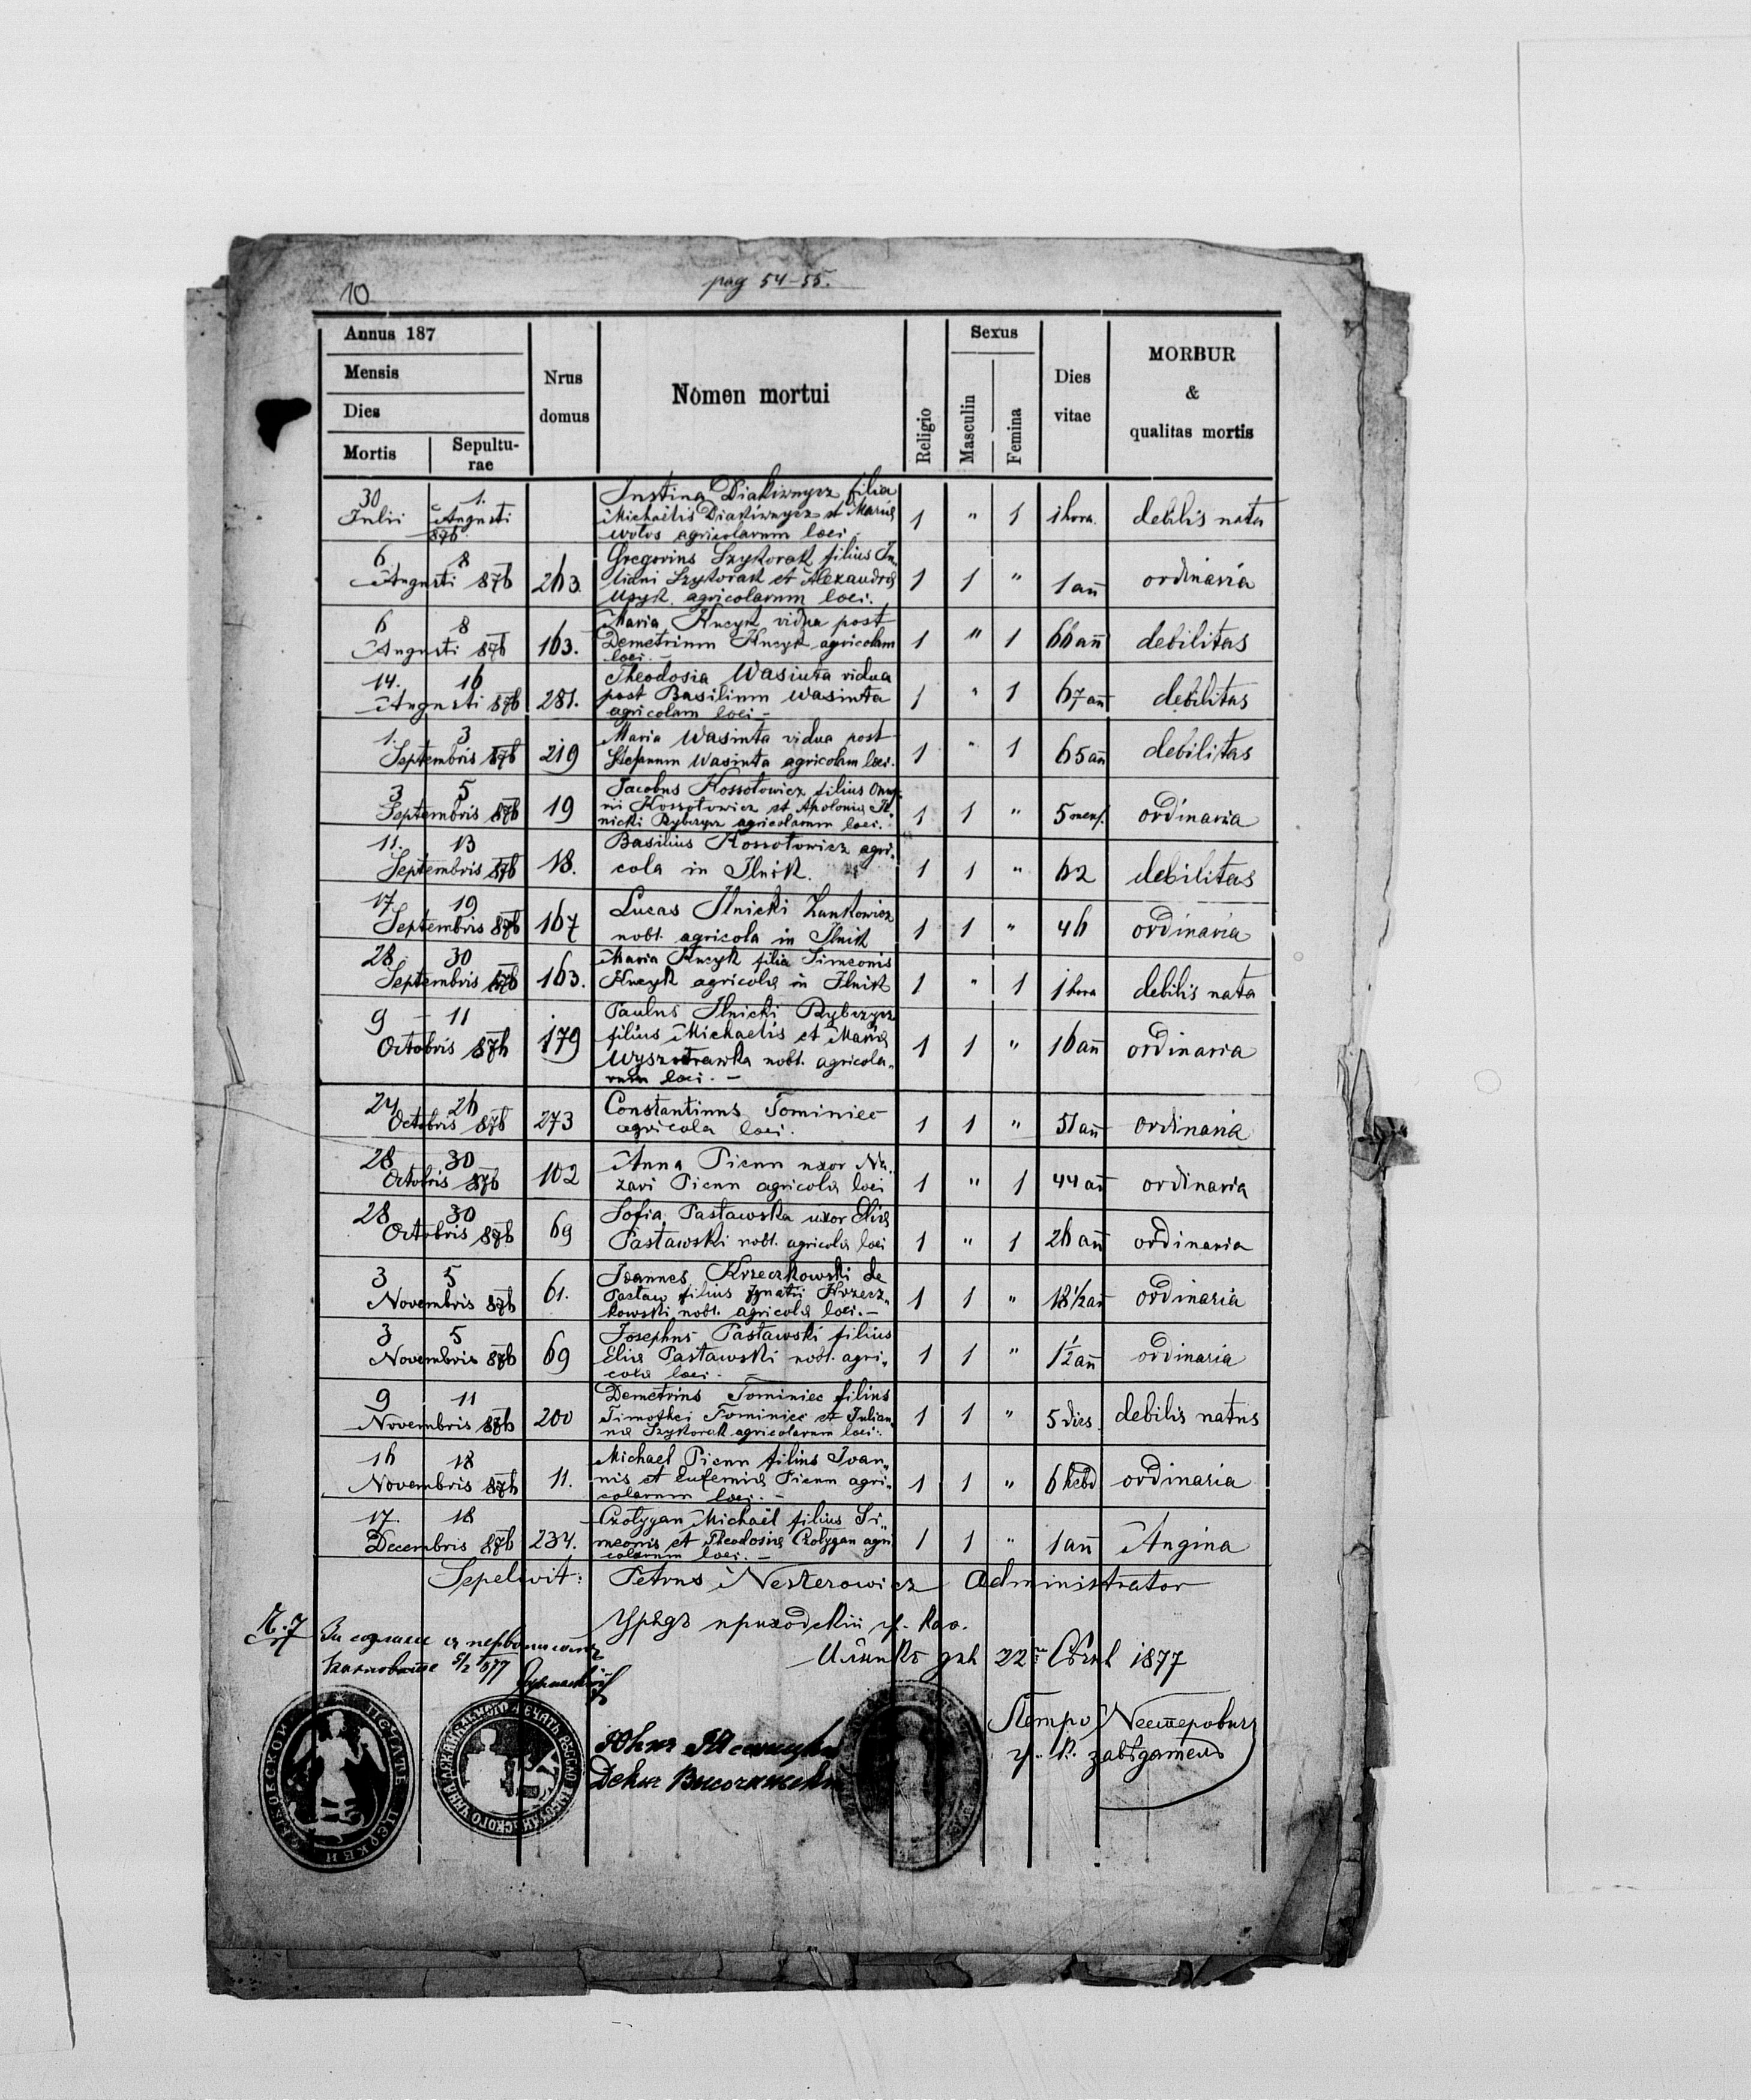 10
pag 54-55.
Annus 187
Mensis
Dies
Mortis
Sepultu-
rae
Nrus
domus
Nomen mortui
Religio
Sexus
Masculin
Femina
Dies
vitae
MORBUR
&
qualitas mortis
30 Julii 1. Augusti 876 Justina Diakiwnycz filia
Michaëlis Diakiwnycz et Mariæ
Wołos agricolarum loci 1 " 1 1 hora debilis nata
6 8 Augusti 876 263. Gregorius Szykorak filius Ju-
liani Szykorak et Alexandræ
Usyk agricolarum loci. 1 1 " 1 ann ordinaria
6 8 Augusti 876 163. Maria Kucyk vidua post
Demetrium Kucyk agricolam
loci. 1 " 1 66 ann debilitas
14. 16 Augusti 876 281. Theodosia Wasiuta vidua
post Basilium Wasiuta
agricolam loci 1 " 1 67 ann debilitas
1. 3 Septembris 876 219 Maria Wasiuta vidua post
Stefanum Wasiuta agricolam loci. 1 " 1 65 ann debilitas
3 5 Septembris 876 19 Jacobus Kossołowicz filius
Kossołowicz et Apoloniæ Il-
nicki Rybczycz agricolarum loci. 1 1 " 5 mens. ordinaria
11. 13 Septembris 876 18. Basilius Kossołowicz agri-
cola in Ilnik. 1 1 " 62 debilitas
17 19 Septembris 876 167 Lucas Ilnicki Zankowicz
nobl. agricola in Ilnik 1 1 " 46 ordinaria
28 30 Septembris 876 163. Maria Kucyk filia Simeonis
Kucyk agricolæ in Ilnik 1 " 1 1 hora debilis nata
9 11 Octobris 876 179 Paulus Ilnicki Rybczycz
filius Michaelis et Mariæ
Wyszotrawka nobl. agricola-
rum loci. 1 1 " 16 ann ordinaria
24 26 Octobris 876 273 Constantinus Fominiec
agricola loci. 1 1 " 51 ann ordinaria
28 30 Octobris 876 102 Anna Pienn uxor Na-
zari Pienn agricolæ loci 1 " 1 44 ann ordinaria
28 30 Octobris 876 69 Sofia Pasławska uxor Eliæ
Pasławski nobl. agricolæ loci 1 " 1 26 ann ordinaria
3 5 Novembris 876 61. Joannes Krzeczkowski de
Pasław filius Ignatii Krzecz-
kowski nobl. agricolæ loci. 1 1 " 18 1/2 ann ordinaria
3 5 Novembris 876 69 Josephus Pasławski filius
Eliæ Pasławski nobl. agri-
colæ loci. 1 1 " 1 1/2 ann ordinaria
9 11 Novembris 876 200 Demetrius Fominiec filius
Timothei Fominiec et Julian-
næ Szykorak agricolarum loci. 1 1 " 5 dies debilis natus
16 18 Novembris 876 11. Michael Pienn filius Ioan-
nis et Eufemiæ Pienn agri-
colarum loci. 1 1 " 6 hebd ordinaria
17. 18 Decembris 876 234. Czołygan Michaël filius Si-
meonis et Theodosiæ Czołygan agri
colarum loci. 1 1 " 1 ann Angina
Sepelivit: Petrus Nesterowicz Administrator
Ч. 7
Урядъ приходскій гр. Као.
Ильникъ дня 22 Сѣчня 1877
Петро Нестеровичъ
завѣдатель